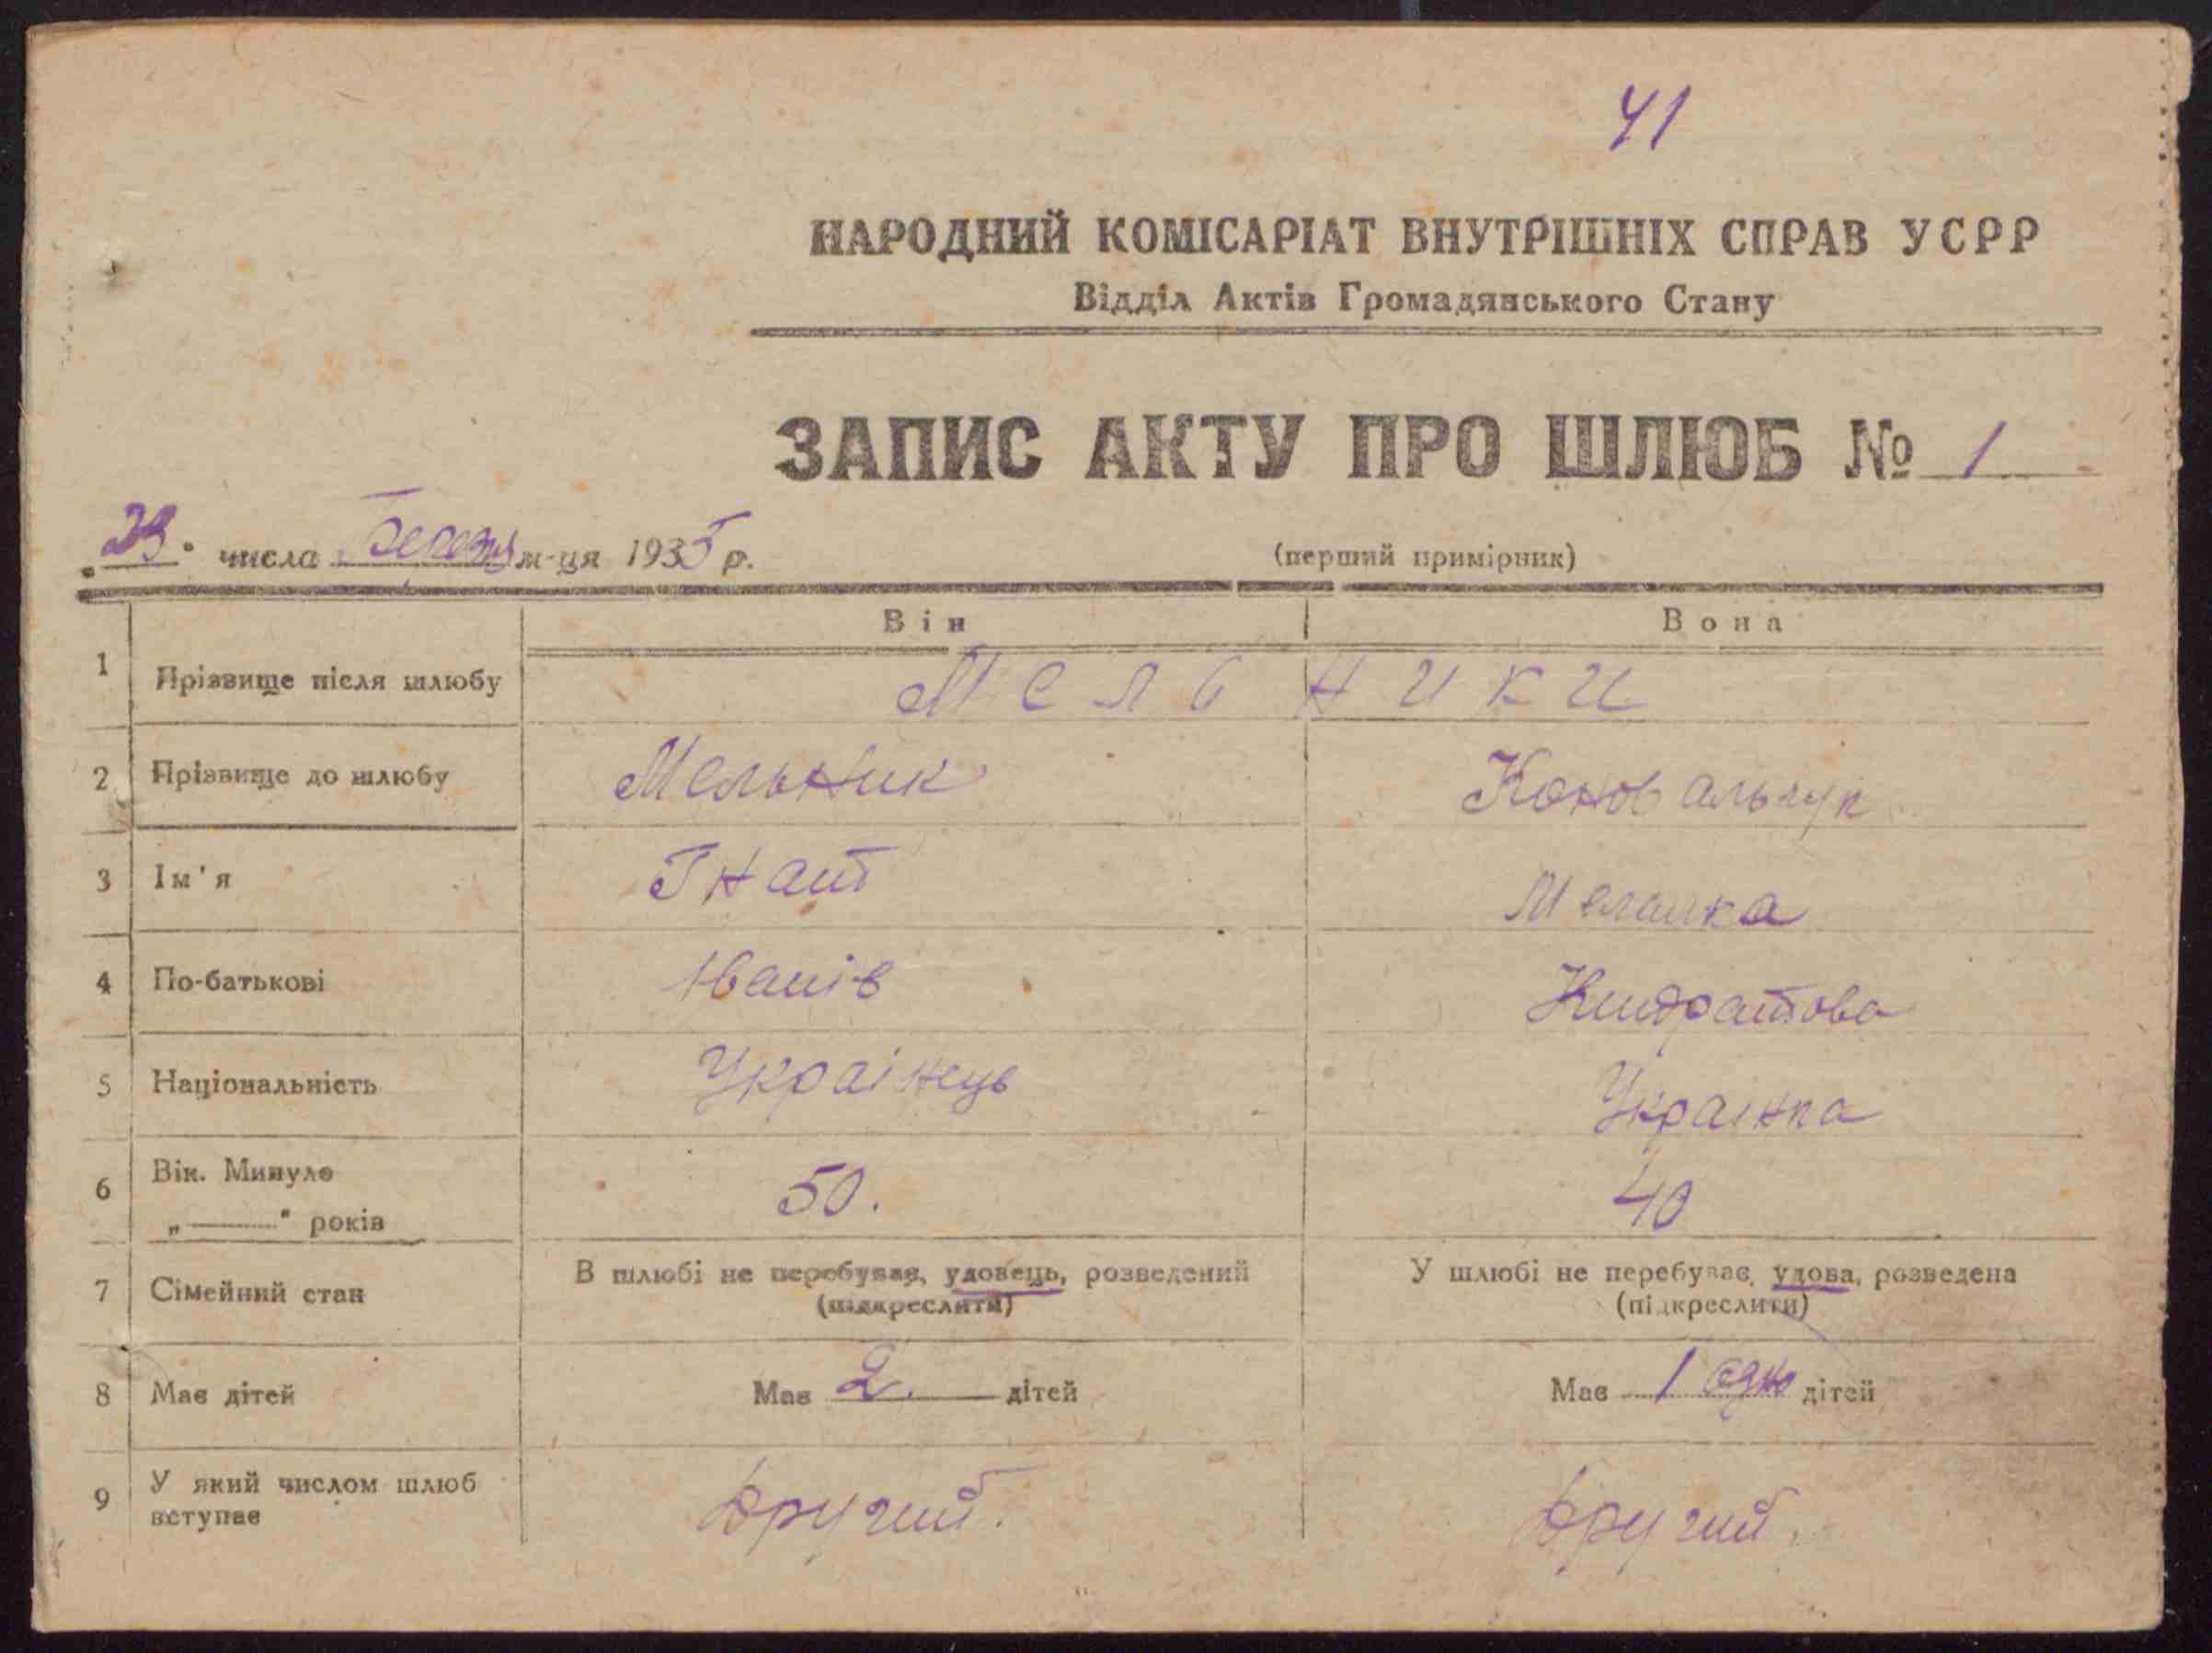 41
НАРОДНИЙ КОМІСАРІАТ ВНУТРІШНІХ СПРАВ УСРР
Відділ Актів Громадянського Стану
ЗАПИС АКТУ ПРО ШЛЮБ № 1
"23" числа Березня м-ця 1935 р.
(перший примірник)
Він Вона
1 Прізвище після шлюбу Мельники
2 Прізвище до шлюбу Мельник Коновальчук
3 Ім'я Гнат Меланка
4 По-батькові Іванів Киндратова
5 Національність Українець Украінка
6 Вік. Минуло 50. 40
„ " років
7 Сімейний стан В шлюбі не перебував, удовець, розведений У шлюбі не перебуває, удова, розведена
(підкреслити) (підкреслити)
8 Має дітей Має 2. дітей Має 1 одно дітей
9 У який числом шлюб
вступає другий. другий.